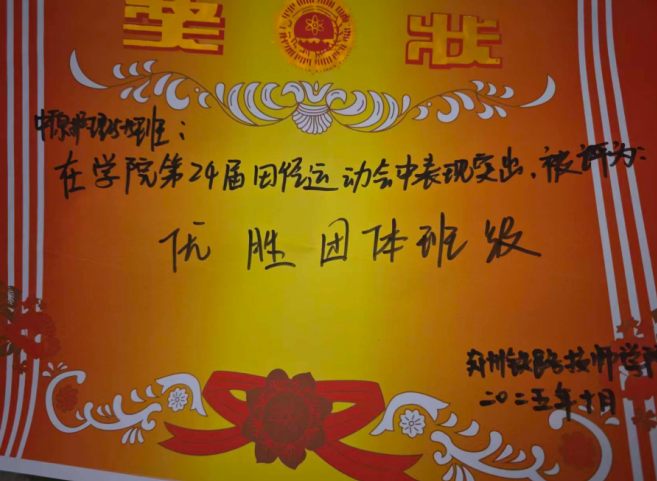 奖状
班：
在学院第24届田径运动会中表现突出，被评为：
优胜团体班级
郑州铁路技师学院
二〇二五年十月